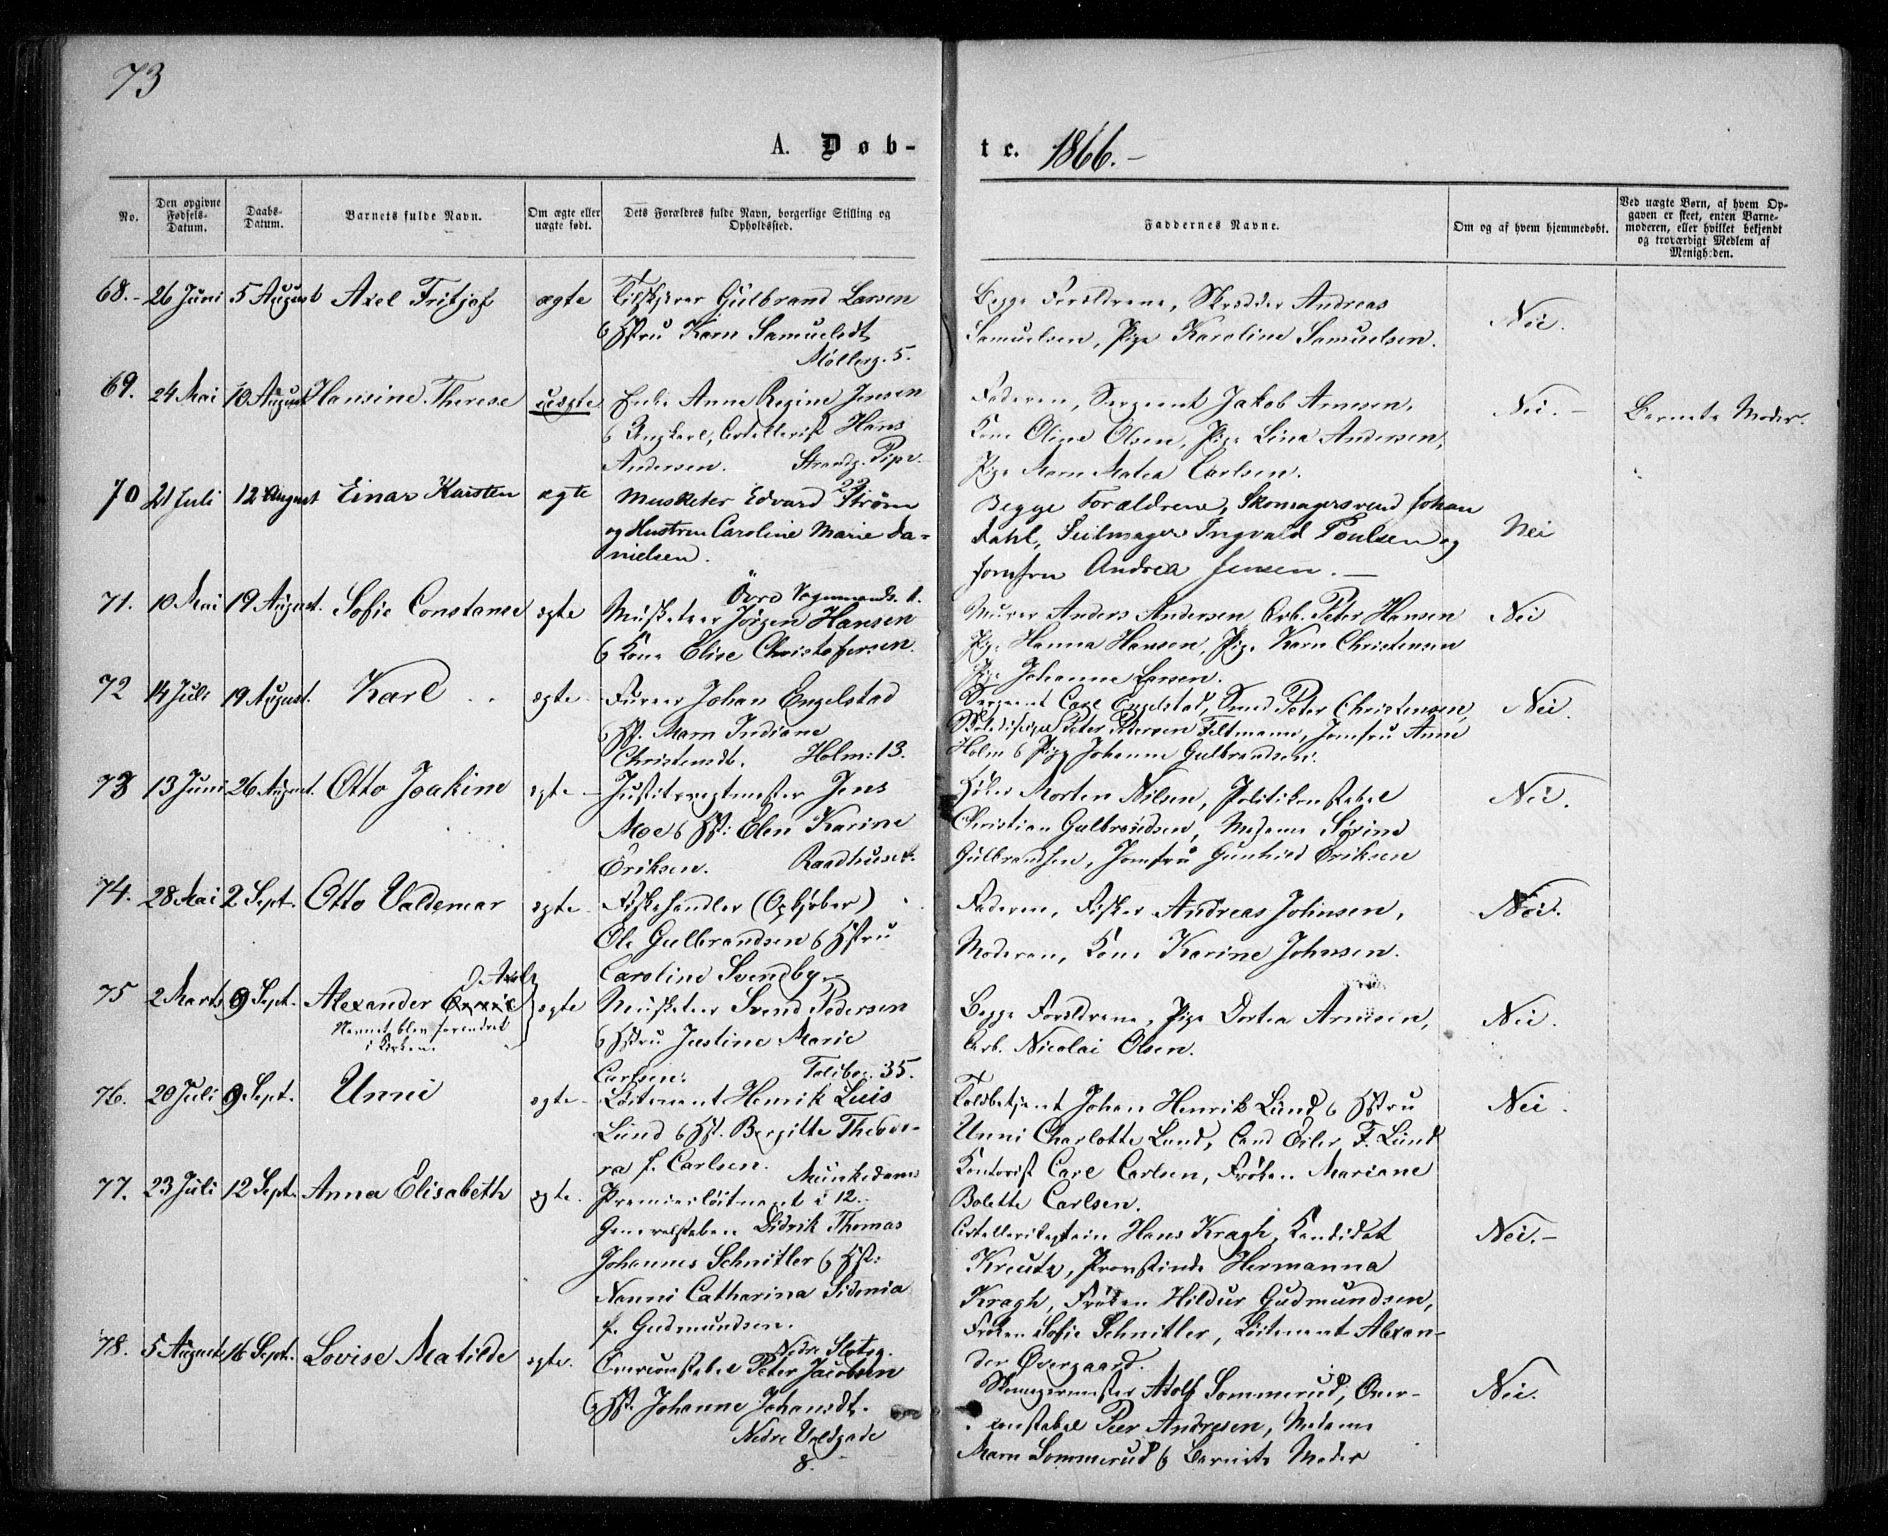 73
A. Døb-
te. 1866.-
No.
Den opgivne Fødsels-Datum.
Daabs-Datum.
Barnets fulde Navn.
Om ægte eller uægte født.
Dets Forældres fulde Navn, borgerlige Stilling og Opholdssted.
Faddernes Navne.
Om og af hvem hjemmedøbt.
Ved uægte Børn, af hvem Opgaven er skeet, enten Barnemoderen, eller hvilket bekjendt og troværdigt Medlem af Menigheden.
68.- 26 Juni 5 August Axel Fritjof ægte Gulbrand Larsen
Hstru Karn Samuelsdt
Møllerg. 5.
Begge Forældrene, Skrædder Andreas
Samuelsen, Pige Karoline Samuelsen.
Nei.
69. 24 Mai 10 August Hansine Therese uægte Enke Anne Regine Jensen
Ungkarl, Artellerist Hans
Andersen. Strandg. Piperv.
22.
Faderen, Sergeant Jakob Arnesen,
Kone Oline Olsen, Pige Lina Andersen,
Pige Marn Matea Carlsen.
Nei.- Barnets Moder.
70 21 Juli 12 August Einar Karsten ægte Musketer Edvard Strøm
og Hustru Caroline Marie Da=
nielsen.
Begge Forældrene, Skomagersvend Johan
Dahl, Seilmager Ingvald Poulsen og
Jomfru Andrea Jensen.-
Nei
71. 10 Mai 19 August. Sofie Constanse ægte Övre Vognmands.
Musketeer Jörgen Hansen
Kone Elise Christofersen.
Murer Anders Andersen, Arb. Peter Hansen
Pige Hanna Hansen, Pige Karn Christensen
Pige Johanne Larsen.
Nei
72 14 Juli 19 August. Karl ægte Fureer Johan Engelstad
Hst. Marn Indiane
Christensdt. Holm: 13.
Sergeant Carl Engelstad, Svend Peter Christensen,
Peter Pedersen Feltmann, Jomfru Anne
Holm Pige Johanne Gulbrandsen.
Nei.
73 13 Juni 26 August. Otto Joakim ægte Justitsvagtmester Jens
Moe Hst: Elen Karine
Eriksen. Raadhuset.
Morten Nilsen, Politikonstabel
Christian Gulbrandsen, Madame Sörine
Gulbrandsen, Jomfru Gunhild Eriksen
Nei.
74. 28 Mai 2 Sept. Otto Valdemar ægte Fiskehandler (Opkjøber)
Ole Gulbrandsen Hstru
Caroline Svendby
Faderen, Fisker Andreas Johnsen,
Moderen, Kone Karine Johnsen.
Nei.
75 2 Marts 9 Sept. Alexander
Navnet blev forandret
i Kirken.
ægte Musketeer Svend Pedersen
Hstru Justine Marie
Carlsen. Toldbog. 35.
Begge Forældrene, Pige Dortea Arnesen,
Arb. Nicolai Olsen.
Nei.
76. 20 Juli 9 Sept. Unni ægte Löitenant Henrik Luis
Lund Hst. Bergitte Theodo-
ra f. Carlsen. Munkedams
12.
Toldbetjent Johan Henrik Lund Hstru
Unni Charlotte Lund, Cand Eiler F. Lund
Kontorist Carl Carlsen, Fröken Mariane
Bolette Carlsen.
Nei.
77. 23 Juli 12 Sept. Anna Elisabeth ægte. Premierlöitnant i
Generalstaben Didrik Thomas
Johannes Schnitler Hst:
Nanni Catharina Sidonia
f. Gudmundsen.
Nedre Slotsg.
Artellerikaptein Hans Kragh, Kandidat
Kreutz, Provstinde Hermanna
Kragh, Fröken Hildur Gudmundsen,
Fröken Sofie Schnitler, Löitenant Alexan-
der Øvergaard.
Nei.-
78. 5 August 16 Sept. Lovise Matilde ægte. Overconstabel Peter Jacobsen
Hst. Johanne Johansdt.
Nedre Voldgade
8.
Adolf Sommerud, Over-
constabel Peer Andresen, Madame
Marn Sommerud Barnets Moder
Nei.